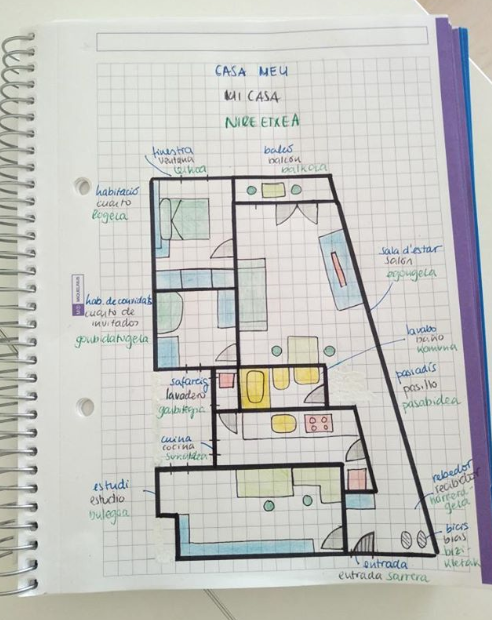 CASA MEU
MI CASA
NIRE ETXEA
finestra
ventana
balcó
balcón
balkoia
habitació
cuarto
logela
sala d'estar
salón
egongela
hab. de convidats
cuarto de
invitados
gonbidatugela
lavabo
baño
komuna
passadís
pasillo
pasabidea
safareig
lavadero
garbitegia
cuina
cocina
sukaldea
estudi
estudio
bulegoa
rebedor
recibidor
harrera
gela
bicis
bicis
bizi-
kletak
entrada
entrada sarrera